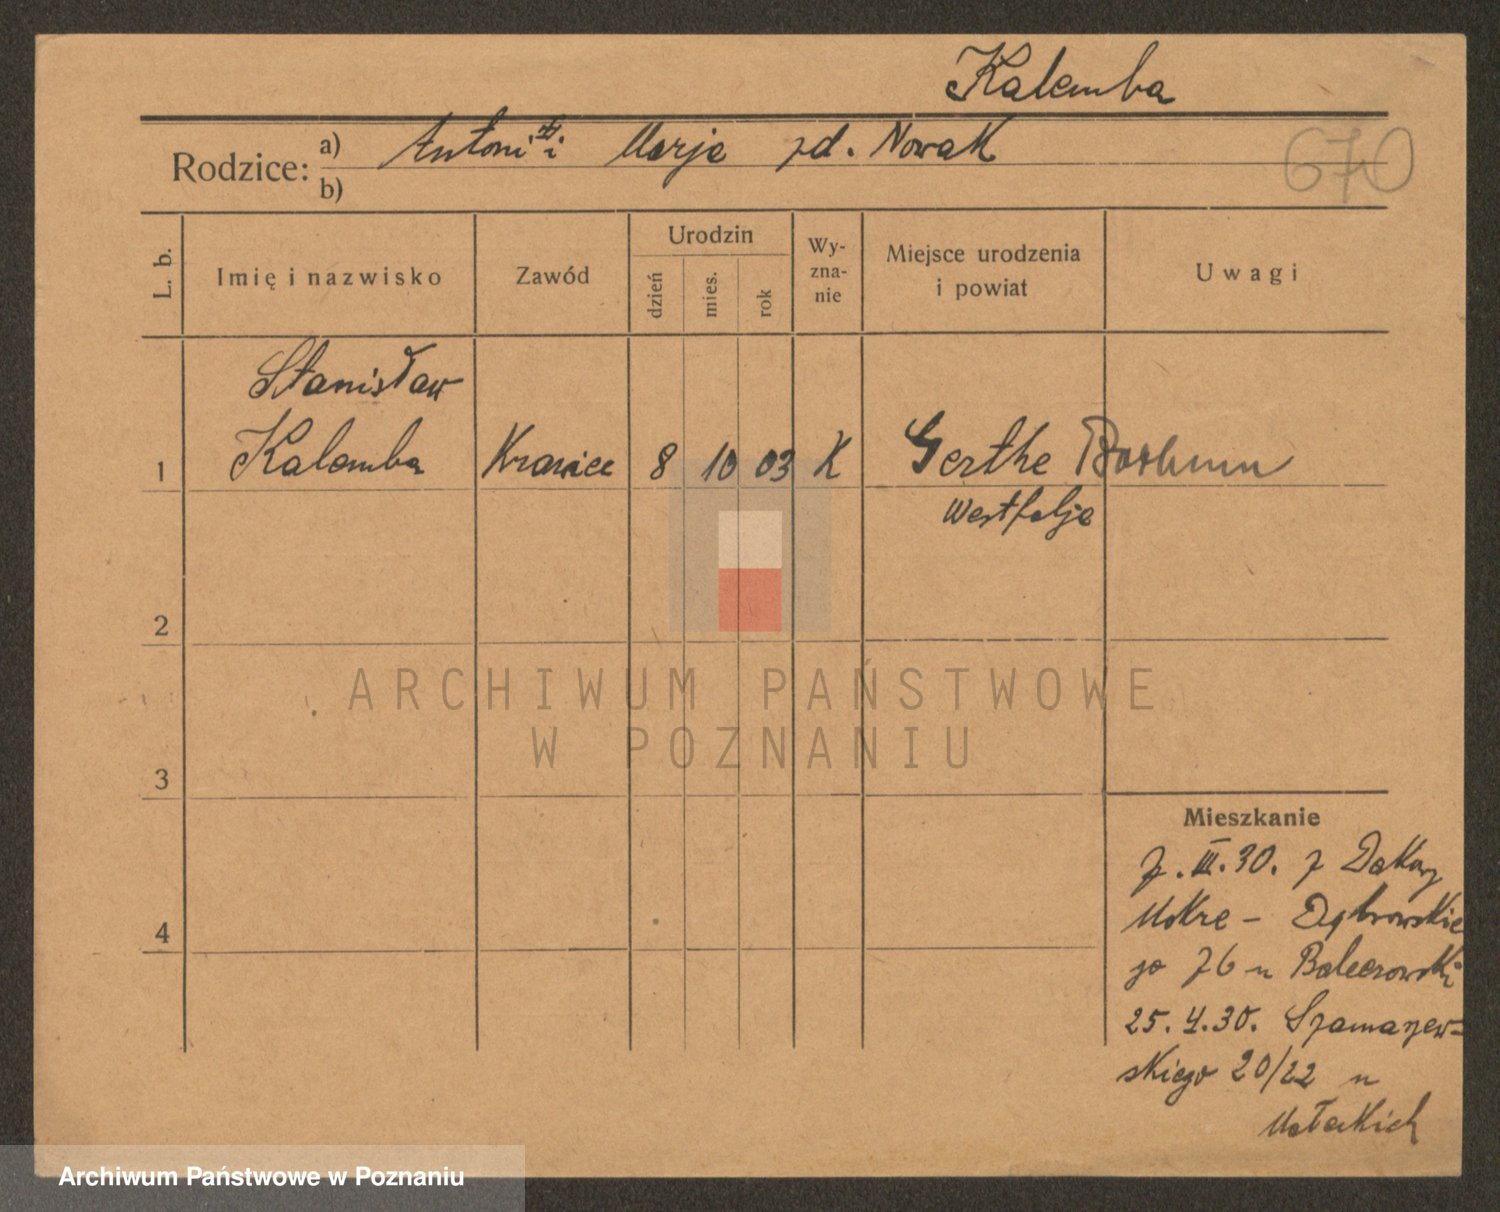 Kalemba
Rodzice: a) Antoni i Marja zd. Nowak
b)
670
L. b.
Imię i nazwisko
Zawód
Urodzin
dzień
mies.
rok
Wy-
zna-
nie
Miejsce urodzenia
i powiat
Uwagi
Stanisław
1 Kalemba Krawiec 8 10 03 K Gerthe Bochum
Westfalje
2
3
4
ARCHIWUM PAŃSTWOWE
W POZNANIU
Mieszkanie
III.30. z
Mokre - Dąbrowskie
go 76 u
25.4.30. Szamarzew-
skiego 20/22 u
Małeckich
Archiwum Państwowe w Poznaniu